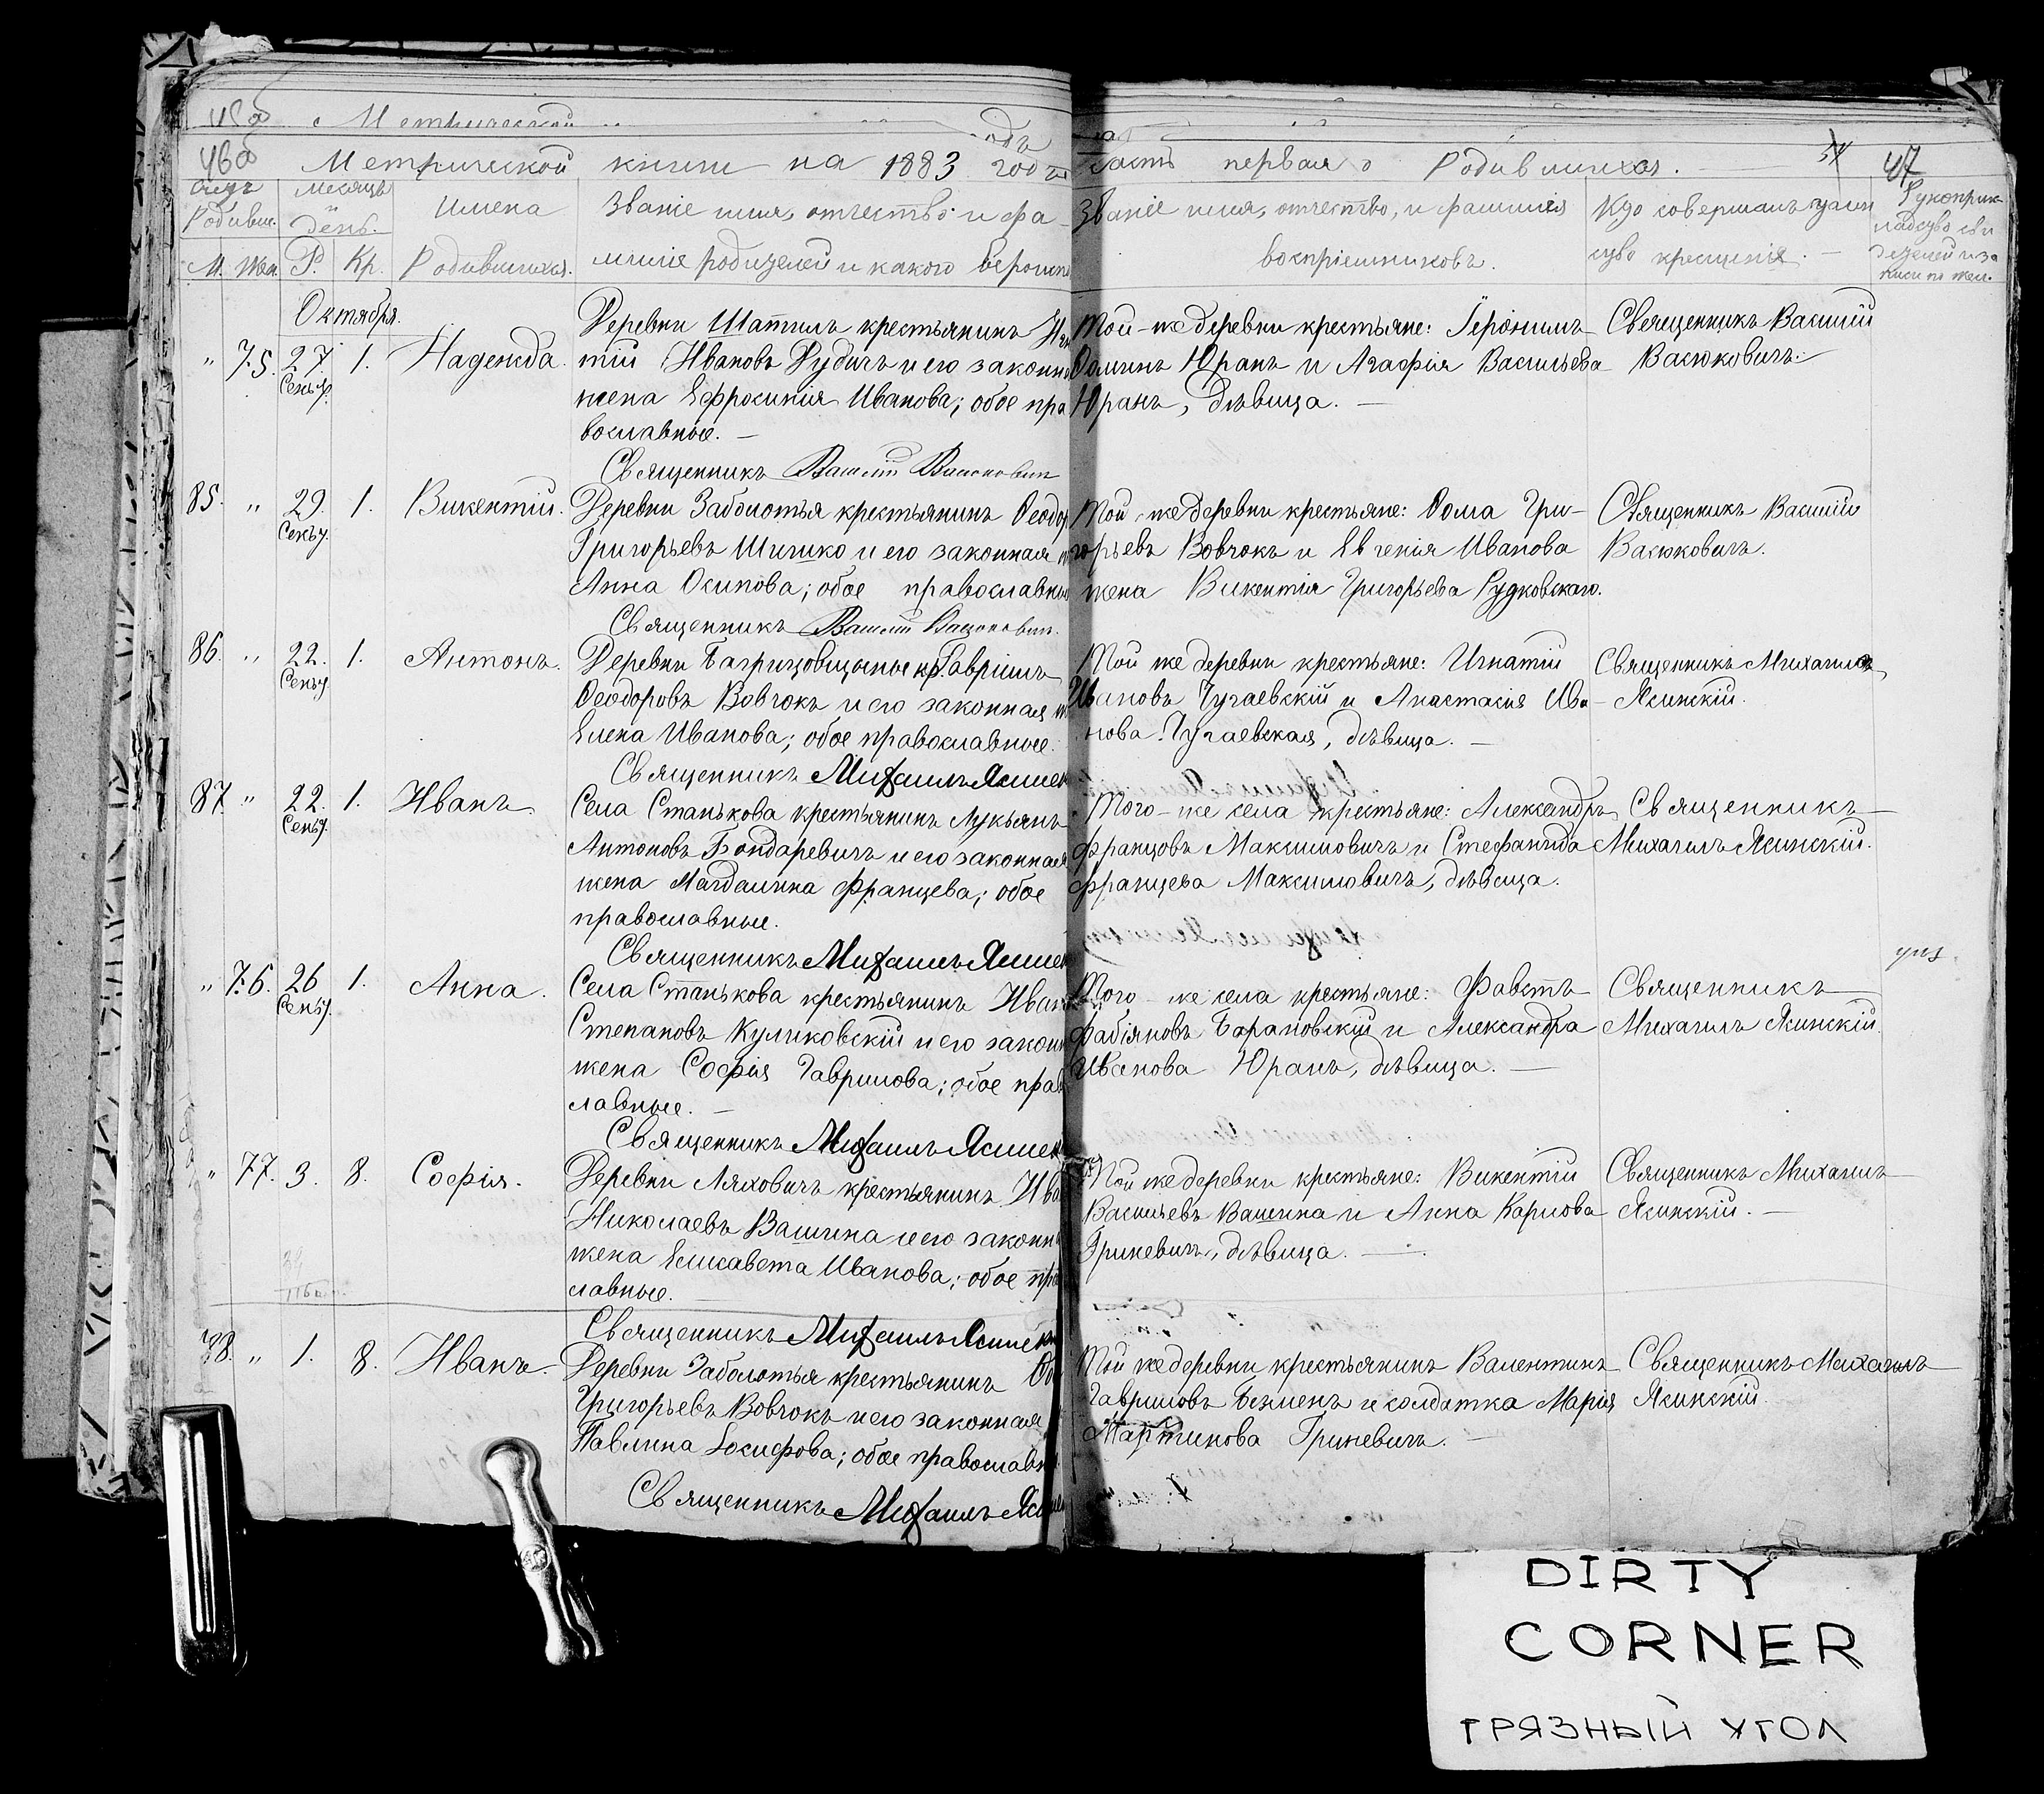 Метрической
46об
Метрической книги на 1883 годъ
часть первая о Родившихся.
47
Счетъ Родивш.
Месяцъ и день.
Имена Родившихся.
Званіе имя, отчество и фамиліе родителей и какого вероисп
Званіе имя, отчество, и фамилія воспріемниковъ.
Кто совершалъ таин
ство крещенія.
Рукоприк
ладство сви
детелей
М. Жен. Р. Кр.
Октября.
" 75. 27. Сент. 1. Надежда.
Деревни Шатилъ крестьянинъ Игн
тій Ивановъ Дудичъ и его законн
жена Ефросинія Иванова; обое пра
вославные. —
Священникъ Василій Васюковичъ
Той-же деревни крестьяне: Іеронимъ
Ѳоминъ Юранъ и Агафія Васильева
Юранъ, дѣвица. —
Священникъ Василій
Васюковичъ.
85. " 29. Сент. 1. Викентій.
Деревни Заболотья крестьянинъ Ѳеодор
Григорьевъ Шишко и его законная
Анна Осипова; обое православны
Священникъ Василій Васюковичъ.
Той-же деревни крестьяне: Ѳома Гри-
горьевъ Вовчокъ и Евгенія Иванова
жена Викентія Григорьева Рудковскаго.
Священникъ Василій
Васюковичъ.
86. " 22. Сент. 1. Антонъ.
Деревни кр. Гавріилъ
Ѳеодоровъ Вовчокъ и его законная
Елена Иванова; обое православные.
Священникъ Михаилъ Ясинск
Той же деревни крестьяне: Игнатій
Ивановъ Чучаевскій и Анастасія Ива-
нова Чучаевская, дѣвица. —
Священникъ Михаилъ
Ясинскій.
87 " 22. Сент. 1. Иванъ.
Села Станькова крестьянинъ Лукьянъ
Антоновъ Бондаревичъ и его законная
жена Магдалина Францева; обое
православные.
Священникъ Михаилъ Ясинск
Того-же села крестьяне: Александръ
Францовъ Максимовичъ и Стефанида
Францева Максимовичъ, дѣвица.
Священникъ
Михаилъ Ясинскій.
" 76. 26 Сент. 1. Анна.
Села Станькова крестьянинъ Иван
Степановъ Куликовскій и его законн
жена Софія Гаврилова; обое прав
лавные. —
Священникъ Михаилъ Ясинск
Того-же села крестьяне: Фавстъ
Фабіяновъ Барановскій и Александра
Иванова Юранъ, дѣвица. —
Священникъ
Михаилъ Ясинскій.
" 77. 3. 8. Софія.
Деревни Ляховичъ крестьянинъ Ива
Николаевъ Вашина и его законн
жена Елисавета Иванова; обое пра
славные.
Священникъ Михаилъ Ясинск
Той же деревни крестьяне: Викентій
Васильевъ Вашина и Анна Карлова
Гриневичъ, дѣвица. —
Священникъ Михаилъ
Ясинскій. —
88. " 1. 8. Иванъ.
Деревни Заболотья крестьянинъ
Григорьевъ Вовчокъ и его законная
Павлина Іосифова; обое православн
Священникъ Михаилъ Ясинск
Той же деревни крестьянинъ Валентинъ
Гавриловъ Безменъ и солдатка Марія
Мартинова Гриневичъ. —
Священникъ Михаилъ
Ясинскій.
DIRTY
CORNER
ГРЯЗНЫЙ УГОЛ